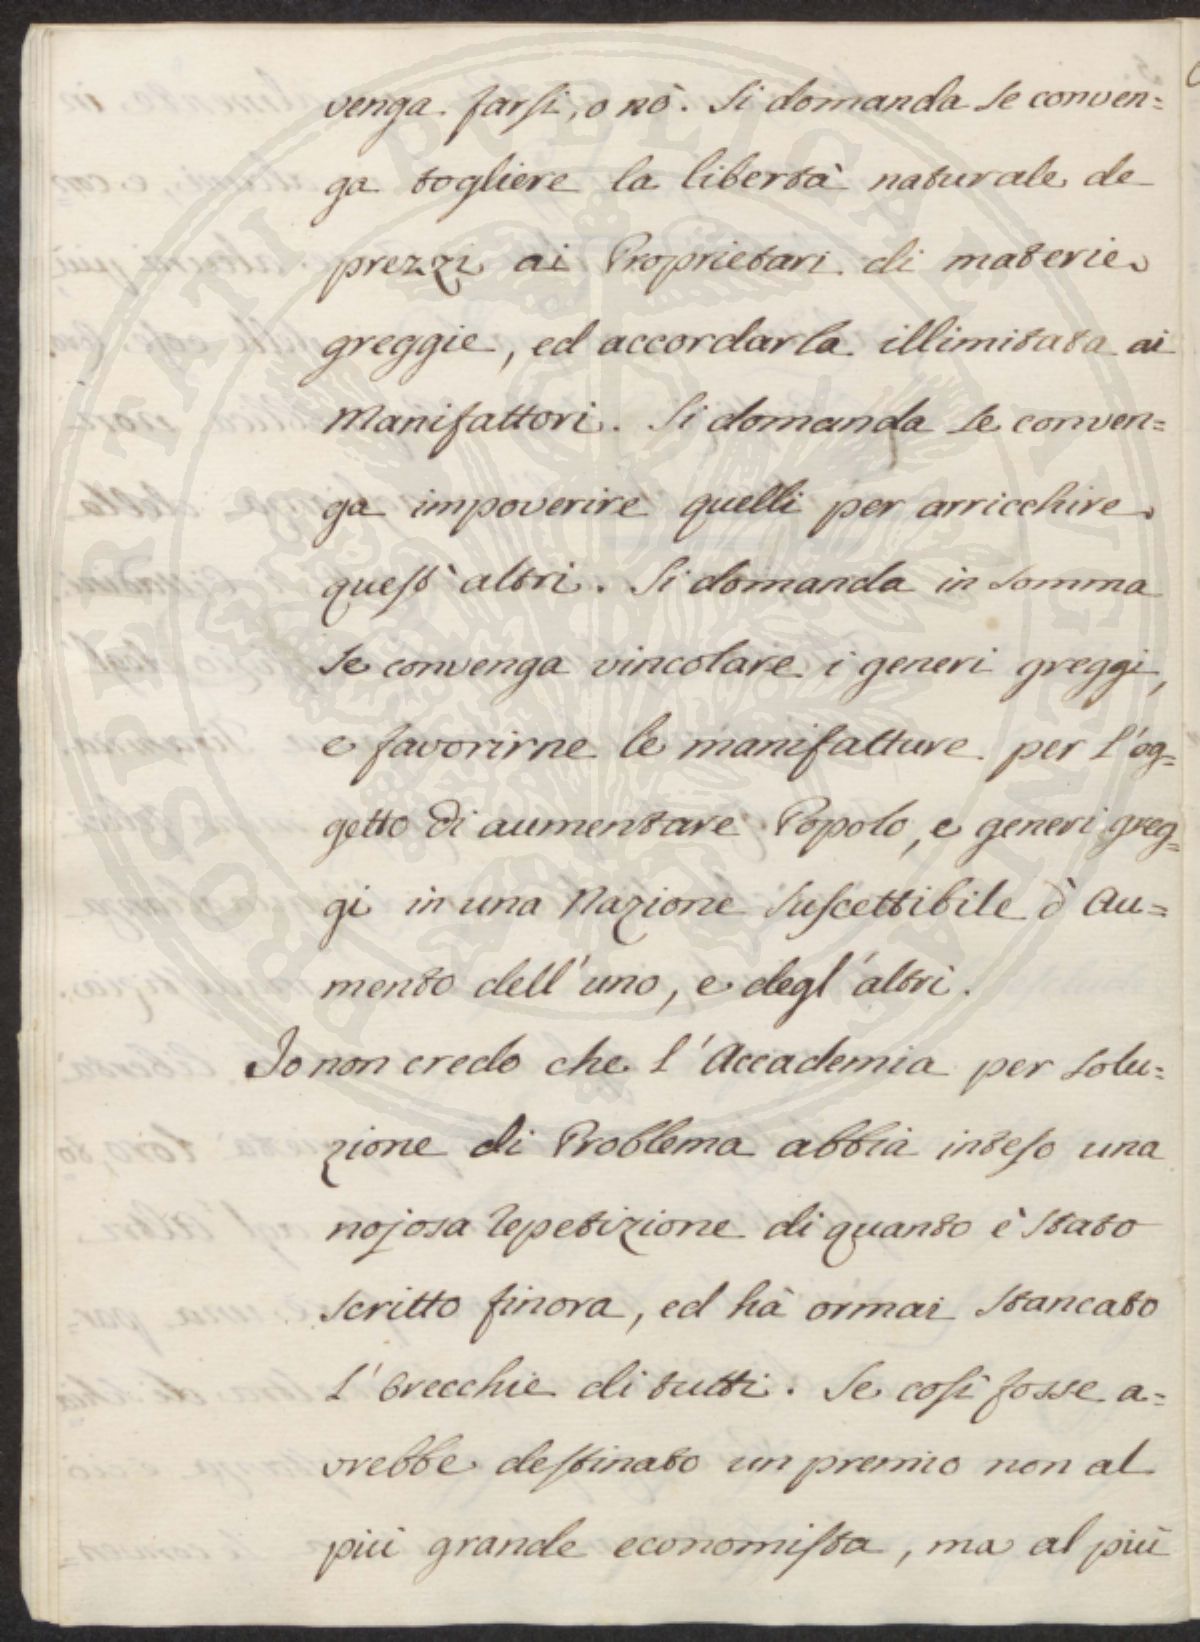 venga farsi, o nò. Si domanda se conven=
ga togliere la libertà naturale de
prezzi ai Proprietari di materie
greggie, ed accordarla illimitata ai
Manifattori. Si domanda se conven=
ga impoverire quelli per arricchire
quest' altri. Si domanda in somma
se convenga vincolare i generi greggi,
e favorirne le manifatture per l'og=
getto di aumentare Popolo, e generi greg=
gi in una Nazione suscettibile d' au=
mento dell' uno, e degl' altri.
Io non credo che l' Accademia per solu=
zione di Problema abbia inteso una
nojosa repetizione di quanto è stato
scritto finora, ed hà ormai stancato
l' orecchie di tutti. Se così fosse a=
vrebbe destinato un premio non al
più grande economista, ma al più
PROSPERITATI PUBLICAE AUGENDAE